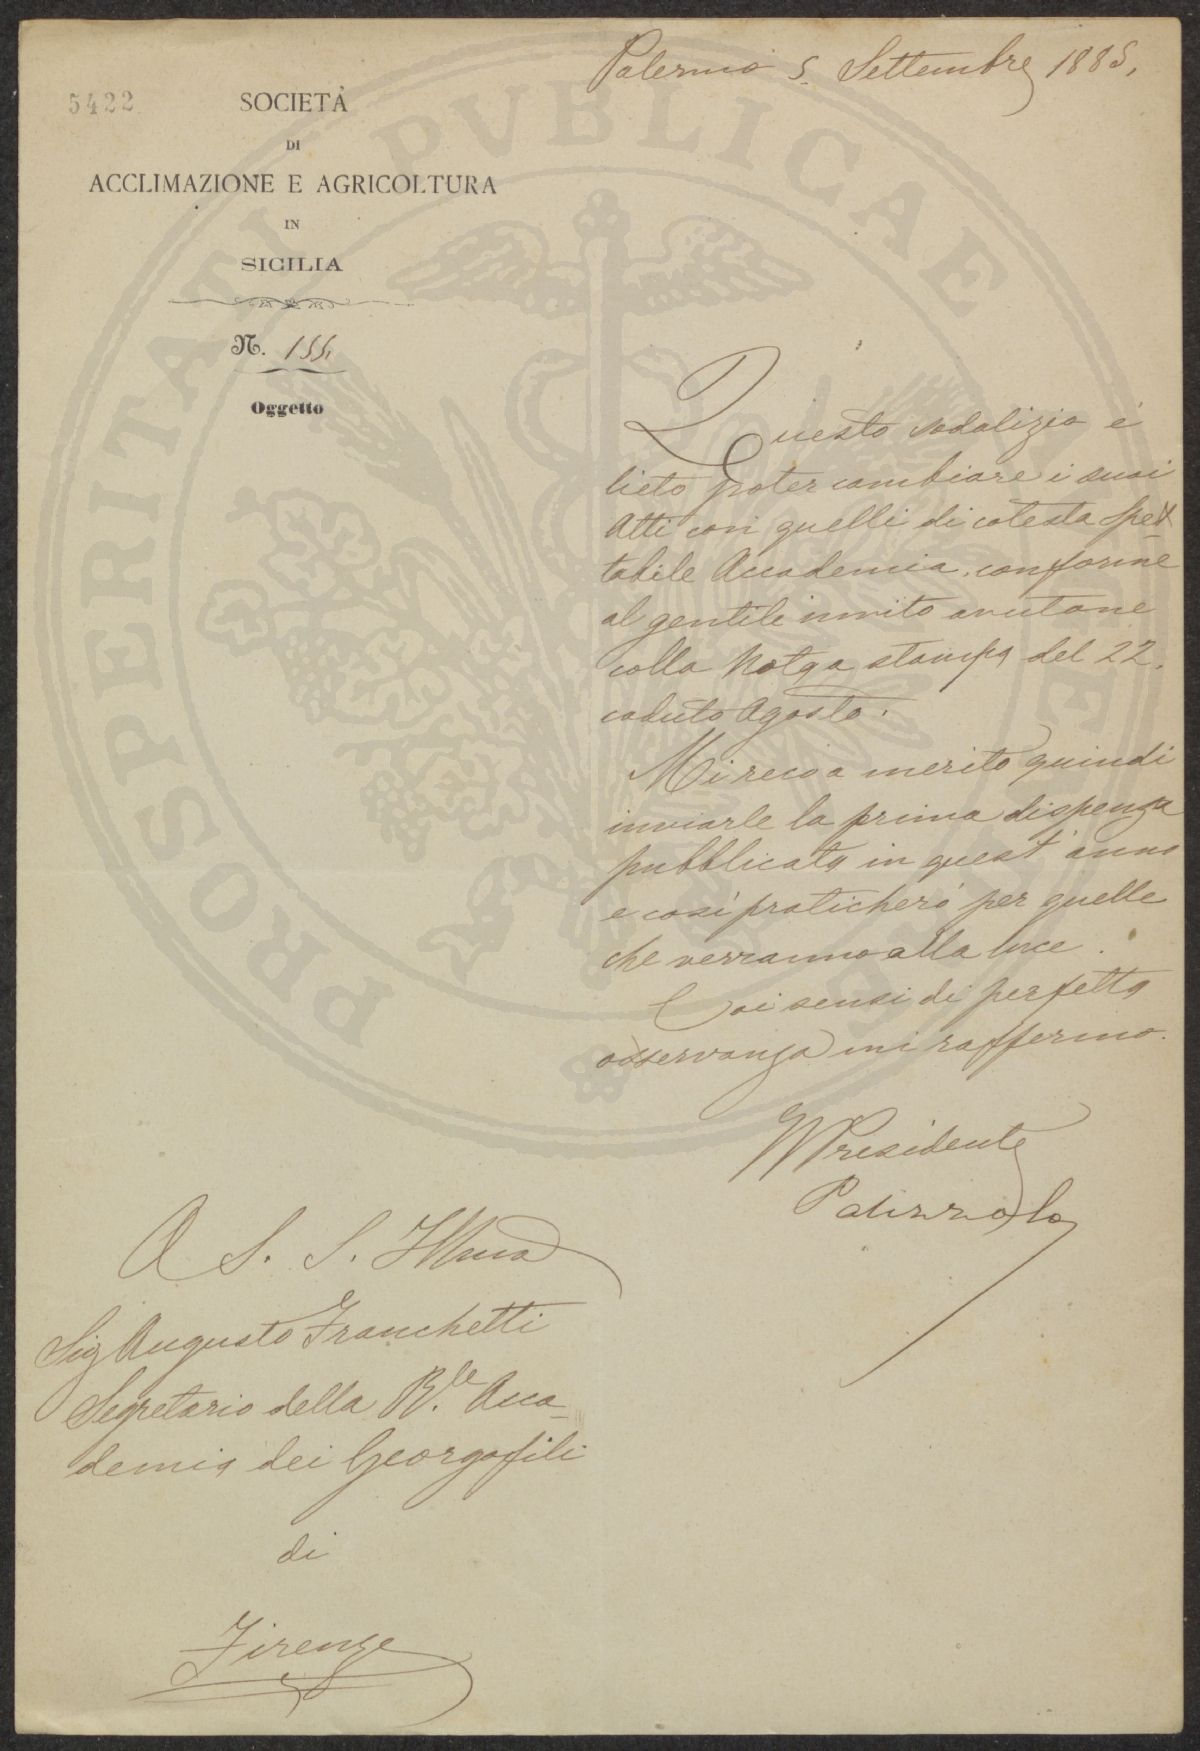 Palermo 5. Settembre 1885.
5422
SOCIETÀ
DI
ACCLIMAZIONE E AGRICOLTURA
IN
SICILIA
N. 155,
Oggetto
Questo sodalizio è
lieto poter cambiare i suoi
Atti con quelli di cotesta Spet
tabile Accademia, conforme
al gentile invito avutone
colla Nota a stampa del 22.
caduto Agosto.
Mi reco a merito quindi
inviarle la prima dispenza
pubblicata in quest'anno
e così praticherò per quelle
che verranno alla luce.
Coi sensi di perfetta
osservanza mi raffermo.
Il Presidente
Palizzolo
A S. S. Illma
Sig Augusto Franchetti
Segretario della R.le Acca_
demia dei Georgofili
di
Firenze
PROSPERITATI PVBLICAE